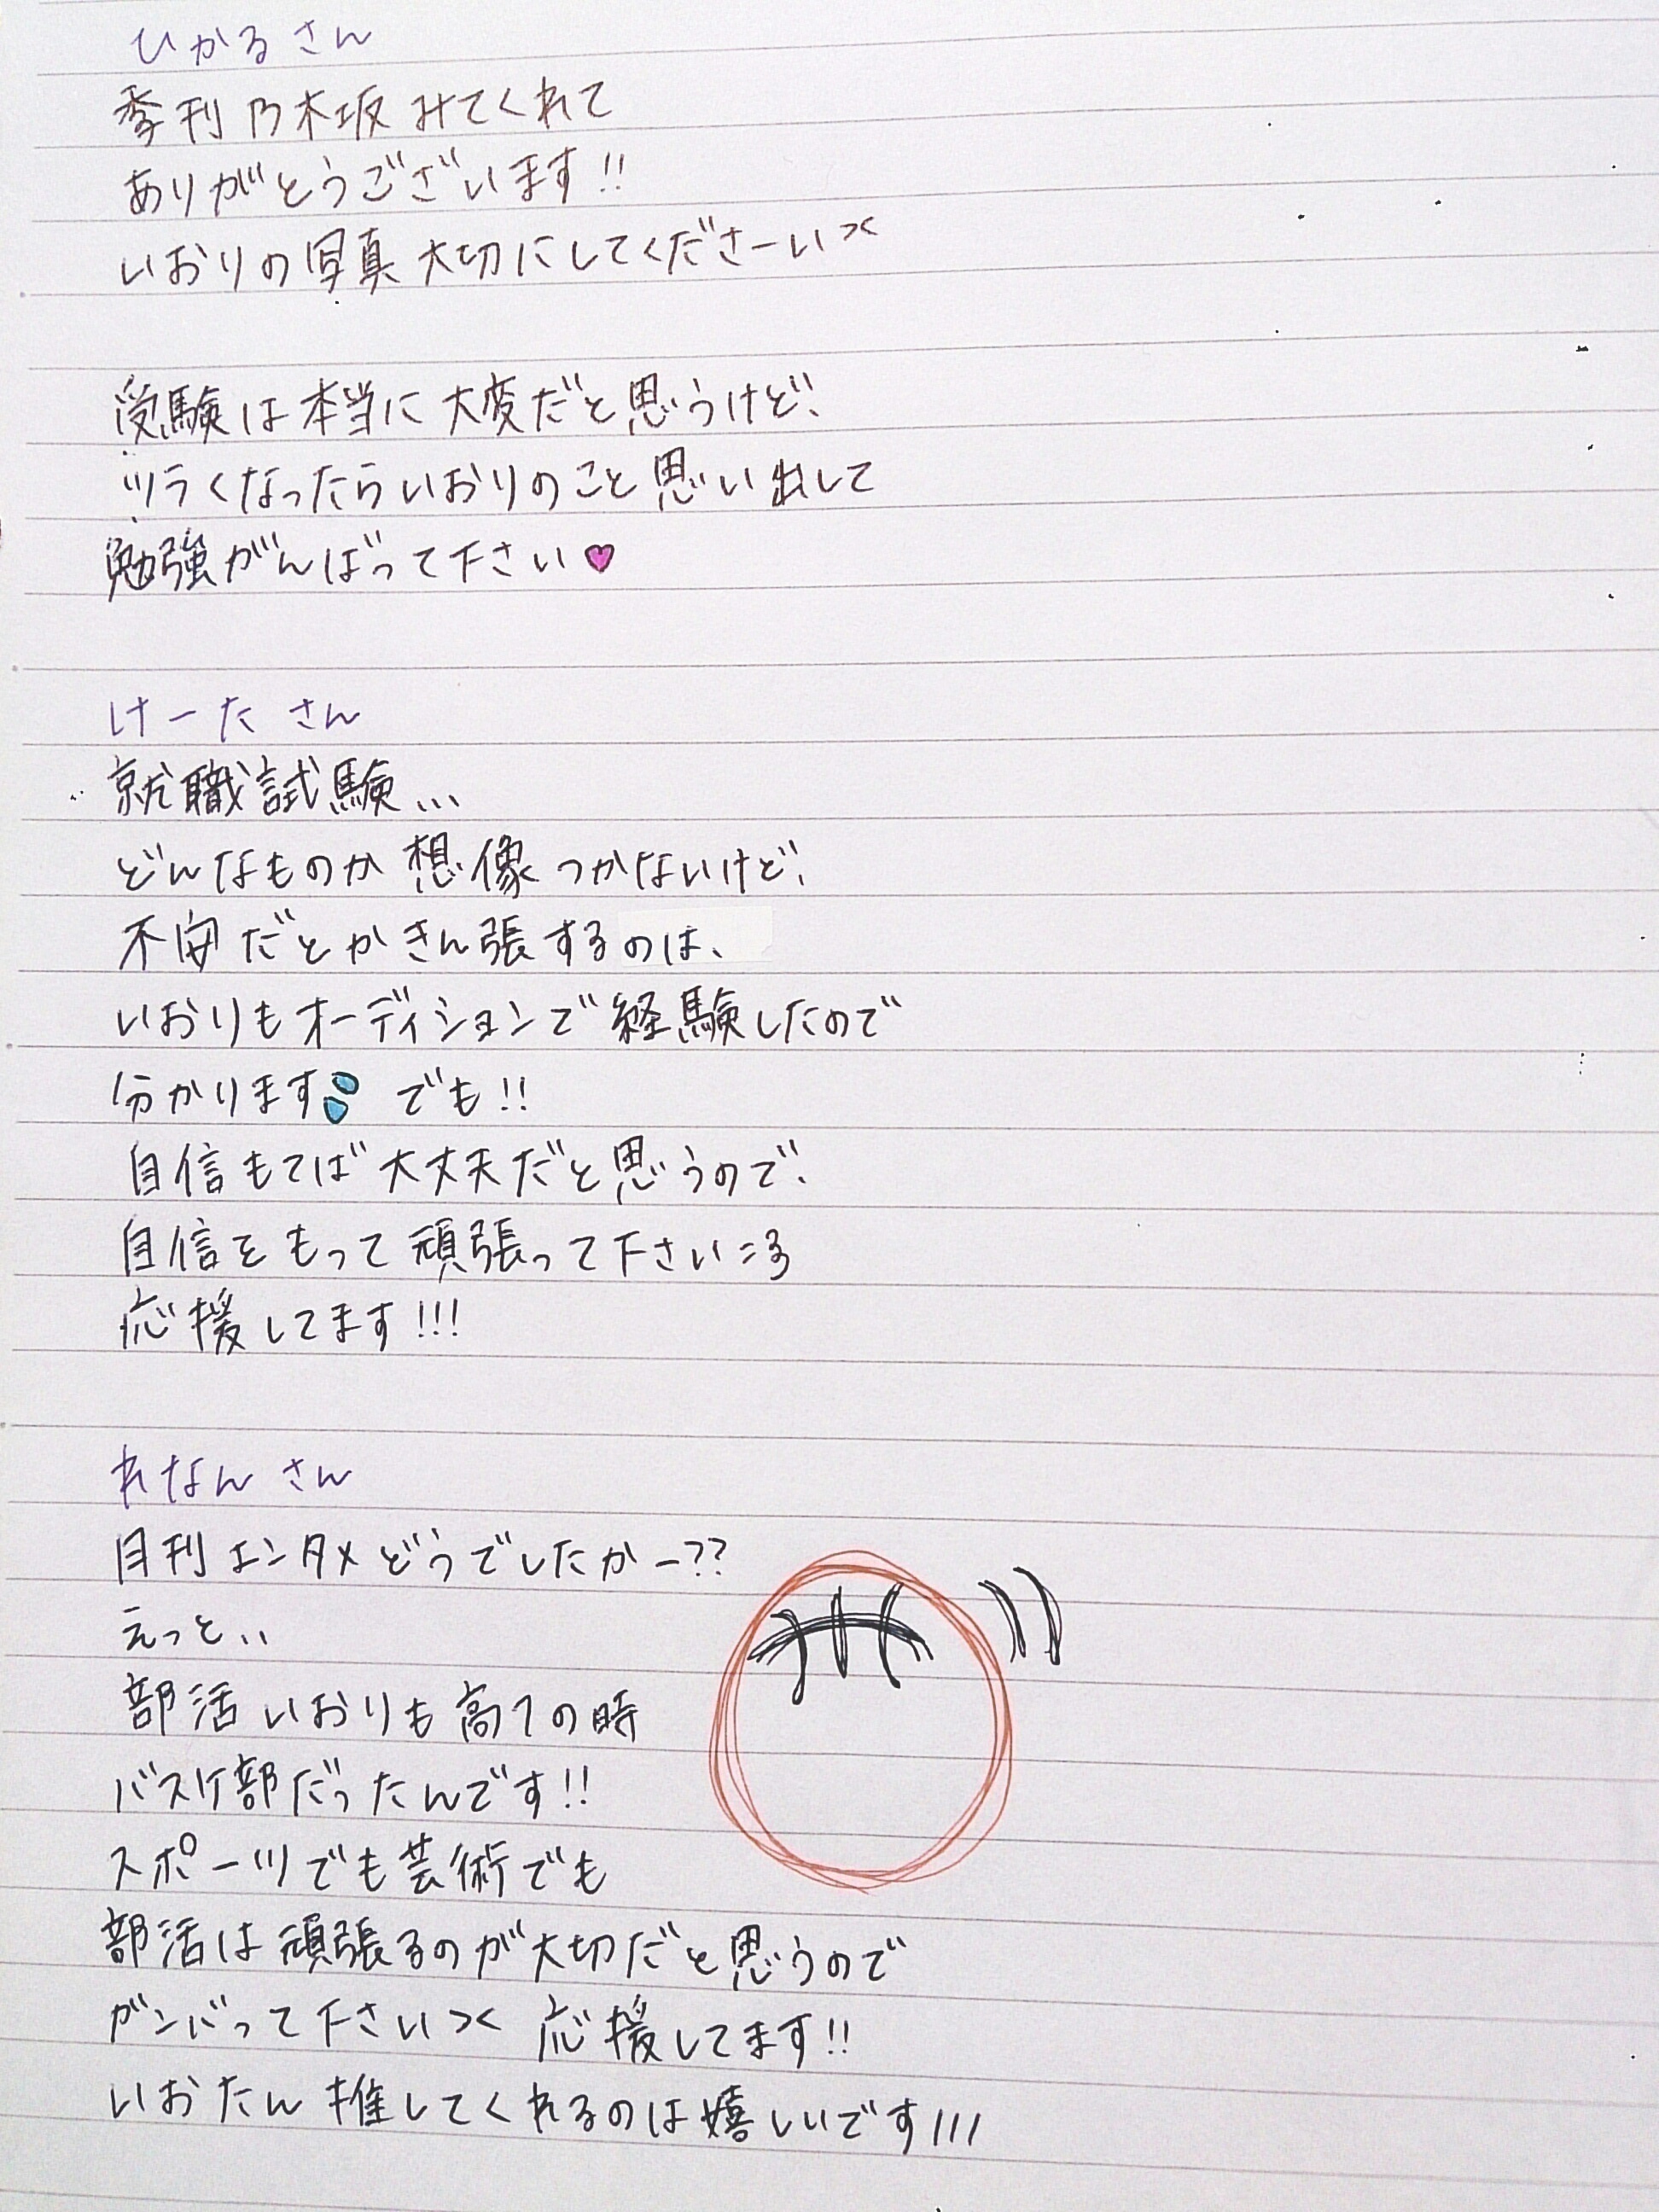 ひかるさん
季刊乃木坂みてくれて
ありがとうございます!!
いおりの写真大切にしてくださーい><
受験は本当に大変だと思うけど、
ツラくなったらいおりのこと思い出して
勉強がんばって下さい♥
けーたさん
就職試験...
どんなものか想像つかないけど、
不安だとかきん張するのは、
いおりもオーディションで経験したので
分かります💦 でも!!
自信もてば大丈夫だと思うので、
自信をもって頑張って下さい=3
応援してます!!!
れなんさん
月刊エンタメどうでしたかー??
えっと..
部活いおりも高1の時
バスケ部だったんです!!
スポーツでも芸術でも
部活は頑張るのが大切だと思うので
ガンバって下さい>< 応援してます!!
いおたん推してくれるのは嬉しいです///